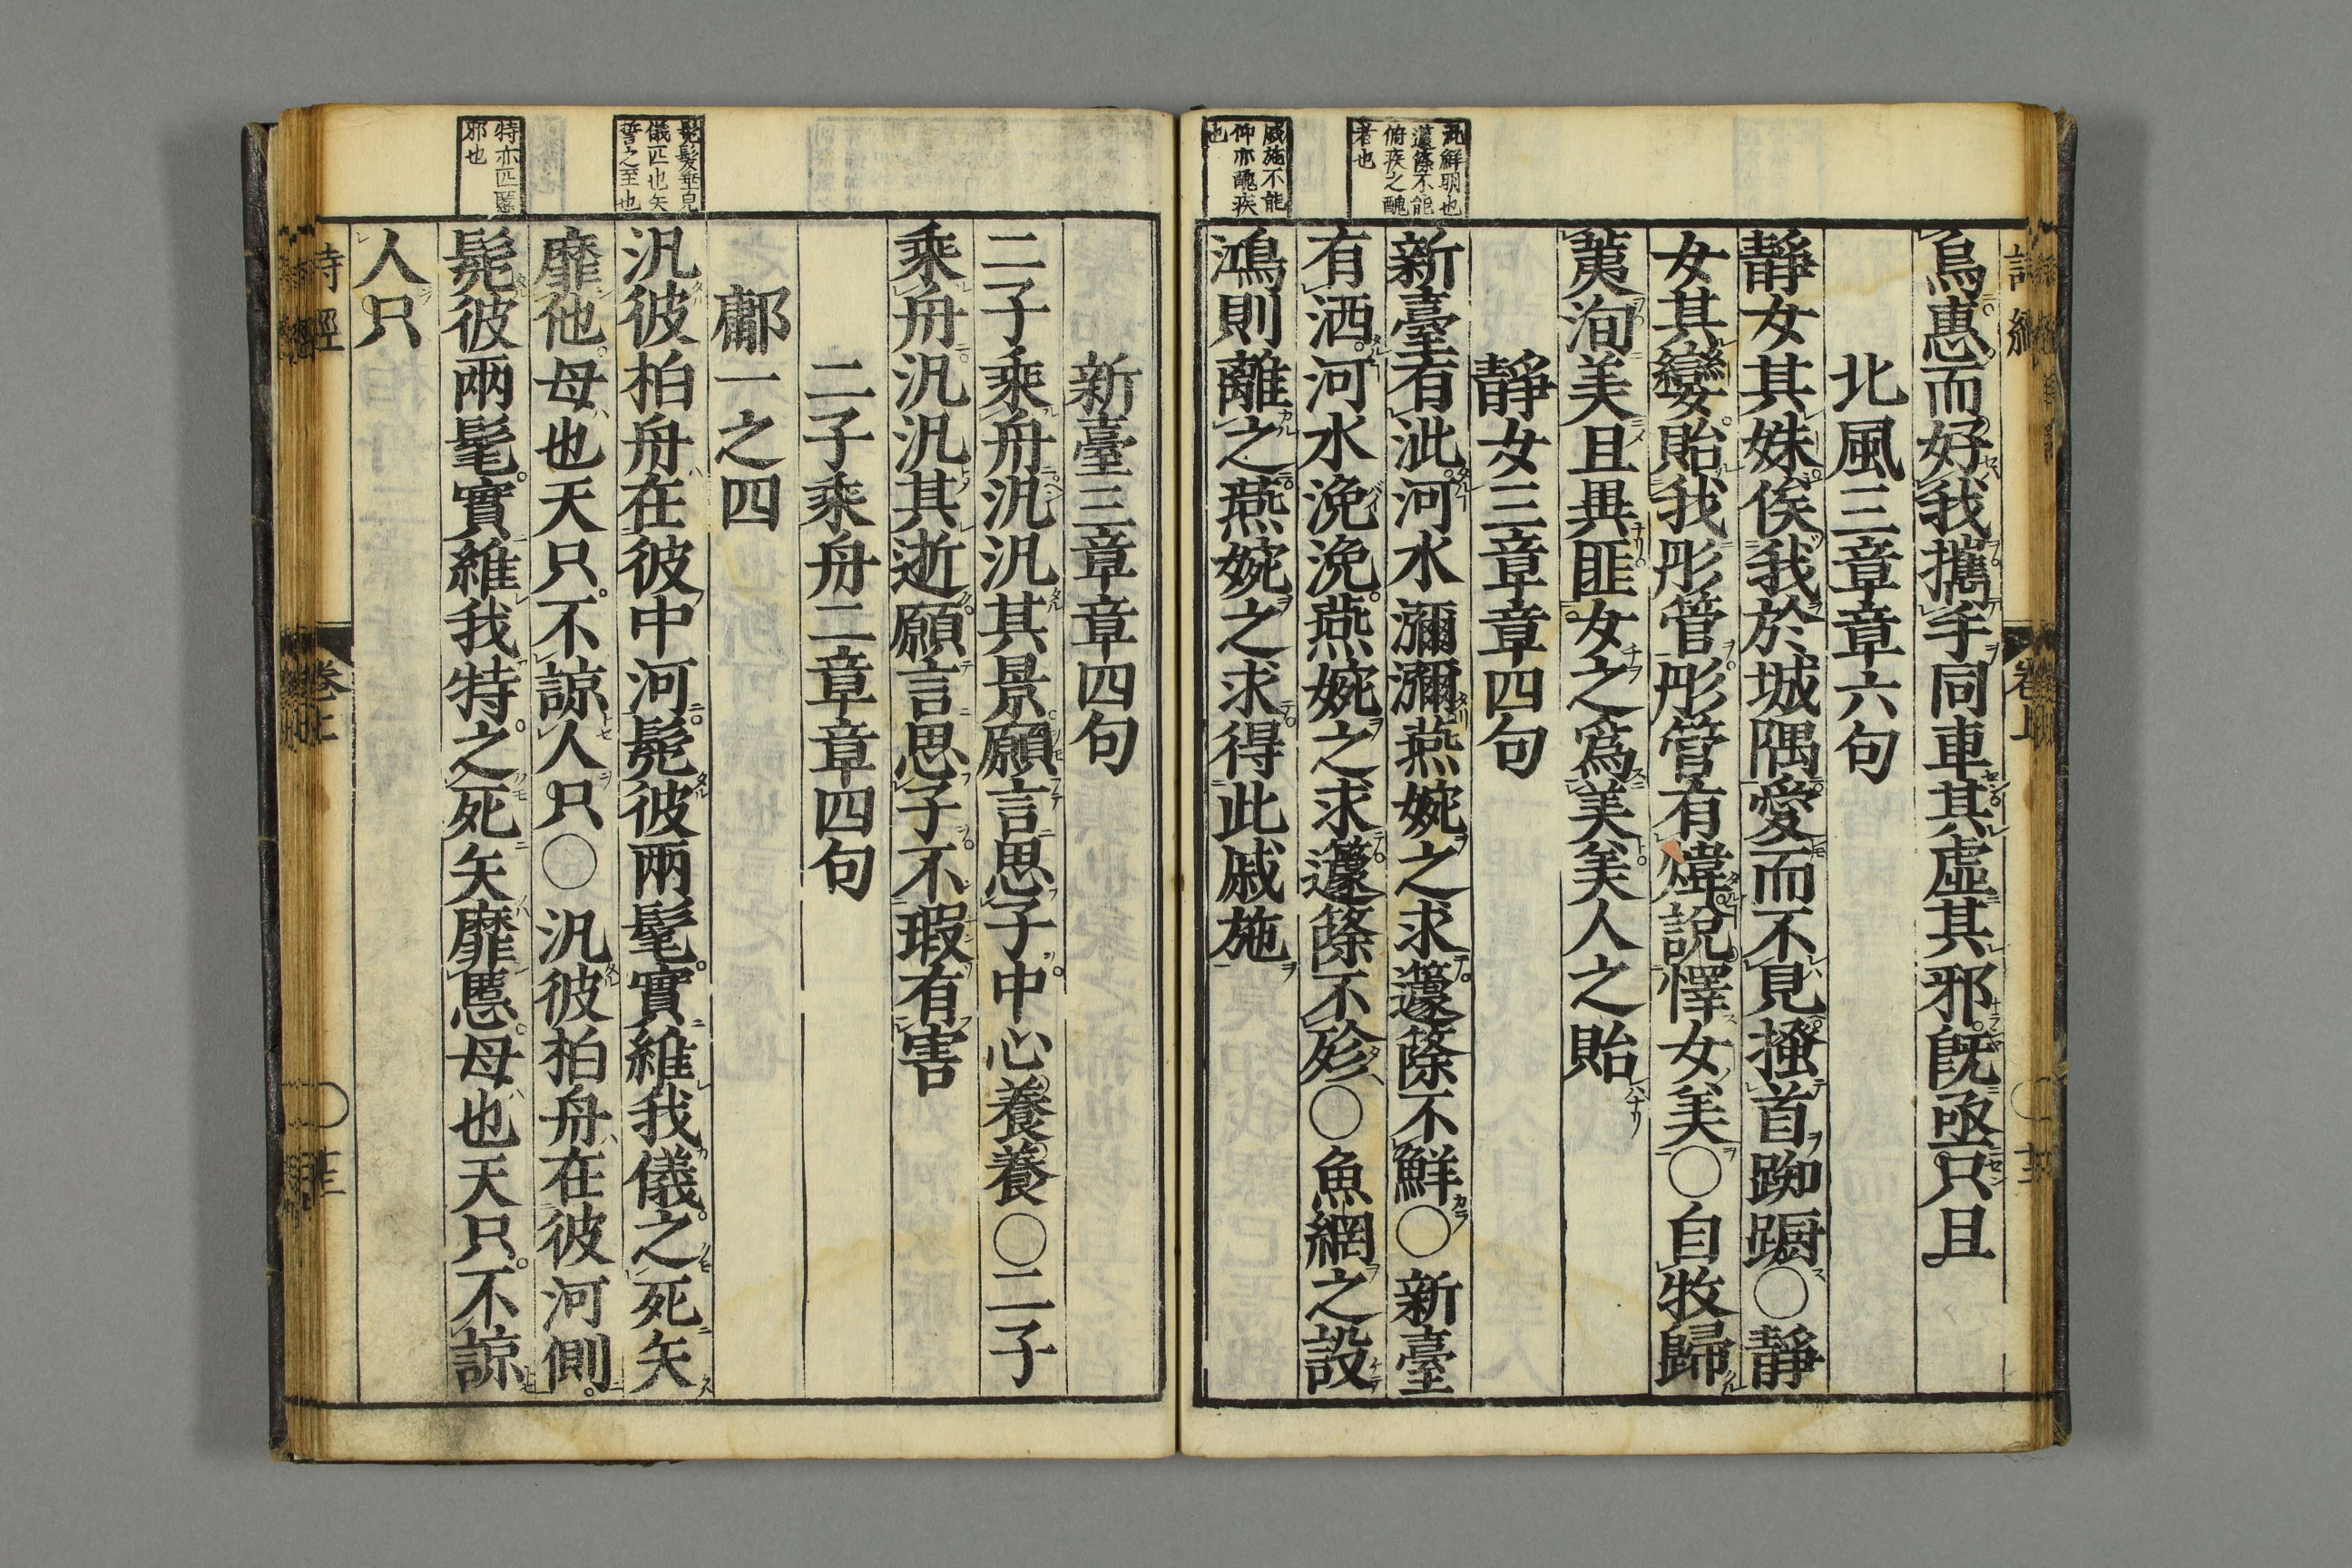 泚鮮明也
籧篨不能
俯疾之醜
者也
戚施不能
仰亦醜疾
也
烏惠而好我攜手同車其虛其邪既亟只且
北風三章章六句
靜女其姝俟我於城隅愛而不見搔首踟蹰〇靜
女其孌貽我彤管彤管有煒說懌女美〇自牧歸
荑洵美且異匪女之爲美美人之貽
靜女三章章四句
新臺有泚河水瀰瀰燕婉之求籧篨不鮮〇新臺
有洒河水浼浼燕婉之求籧篨不殄〇魚網之設
鴻則離之燕婉之求得此戚施
髧髮垂皃
儀匹也矢
誓之至也
特亦匹慝
邪也
新臺三章章四句
二子乘舟汎汎其景願言思子中心養養〇二子
乘舟汎汎其逝願言思子不瑕有害
二子乘舟二章章四句
鄘一之四
汎彼柏舟在彼中河髧彼兩髦實維我儀之死矢
靡他母也天只不諒人只〇汎彼柏舟在彼河側
髧彼兩髦實維我特之死矢靡慝母也天只不諒
人只
詩經
卷上